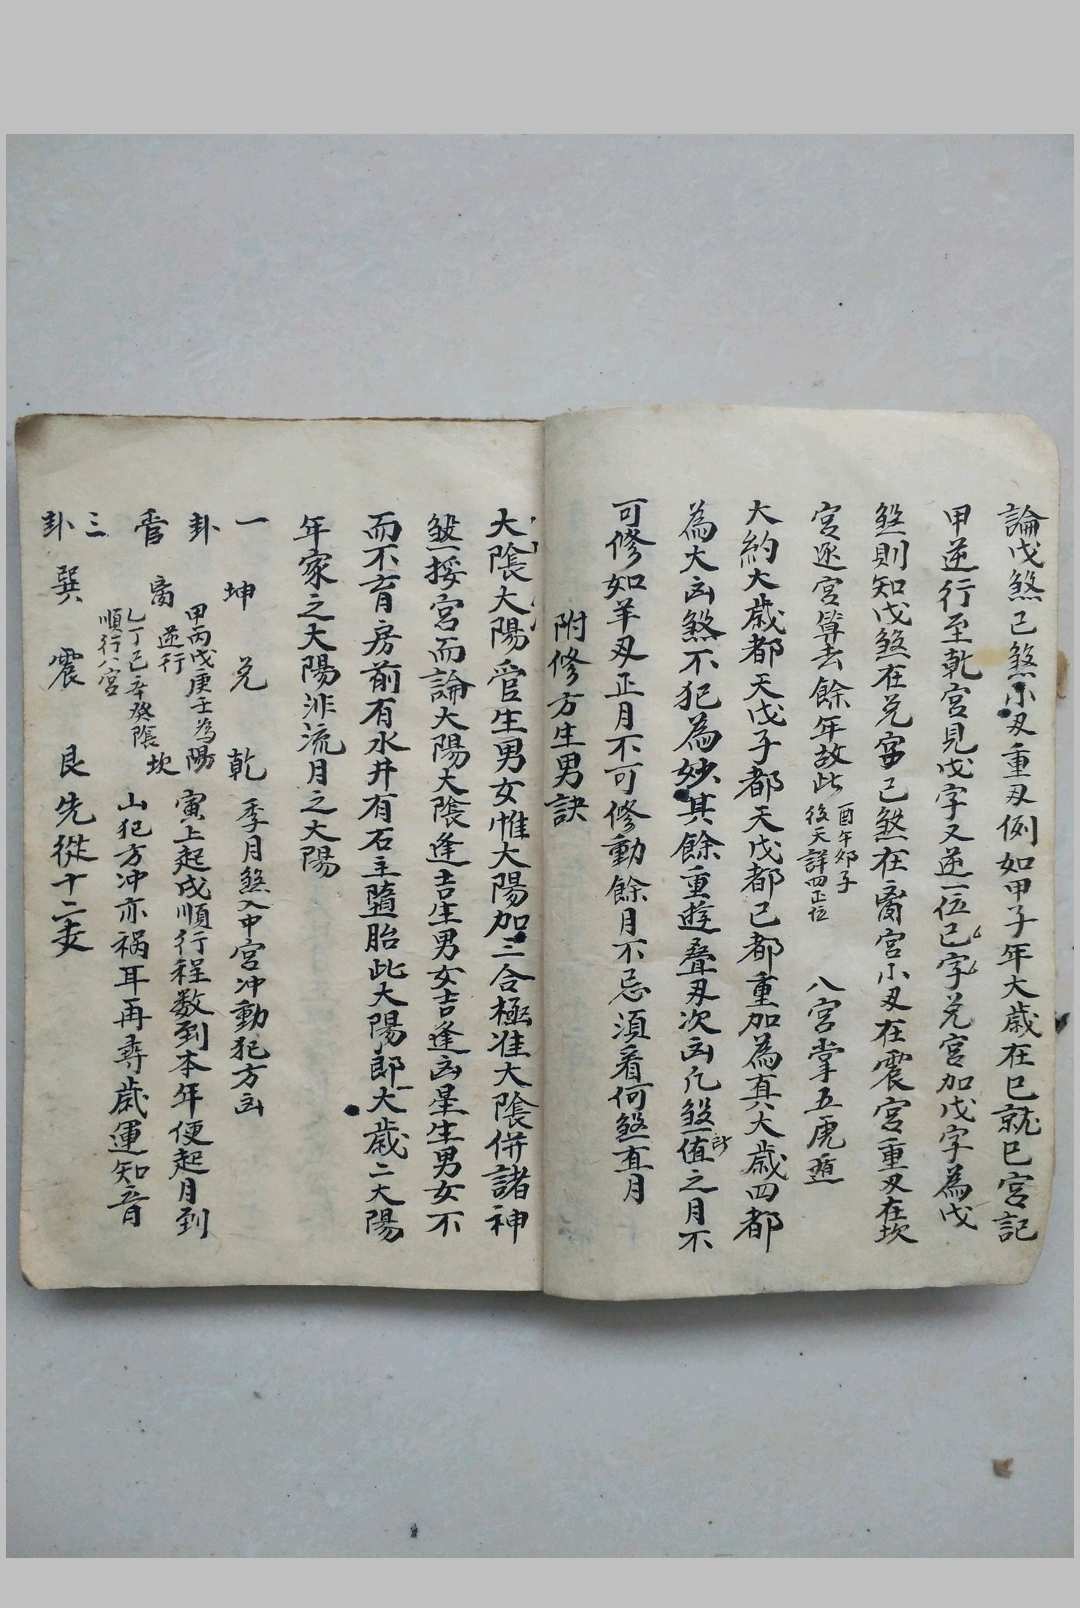 論戊煞己煞小刃重刃例如甲子年大歲在巳就巳宮記
甲逆行至乾宮見戊字又逆一位己字兌宮加戊字為戊
煞則知戊煞在兌宮己煞在离宮小刃在震宮重刃在坎
宮逐宮算去餘年故此
酉午卯子
後天詳四正位
八宮掌五虎遁
大約大歲都天戊子都天戊都己都重加為真大歲四都
為大凶煞不犯為妙其餘重遊疊刃次凶凡煞值之月不
可修如羊刃正月不可修動餘月不忌須看何煞直月
附修方生男訣
大陰大陽管生男女惟大陽加三合極准大陰併諸神
煞挨宮而論大陽大陰逢吉生男女吉逢凶星生男女不
而不育房前有水井有石主墮胎此大陽郎大歲二大陽
年家之大陽非流月之大陽
一 坤 兌 乾 季月煞入中宮冲動犯方凶
卦 甲丙戊庚壬為陽
逆行
寅上起戌順行程数到本年便起月到
管 离 坎
乙丁己辛癸陰
順行八宮
山犯方冲亦祸耳再尋歲運知音
三
卦 巽 震 艮 先從十二支